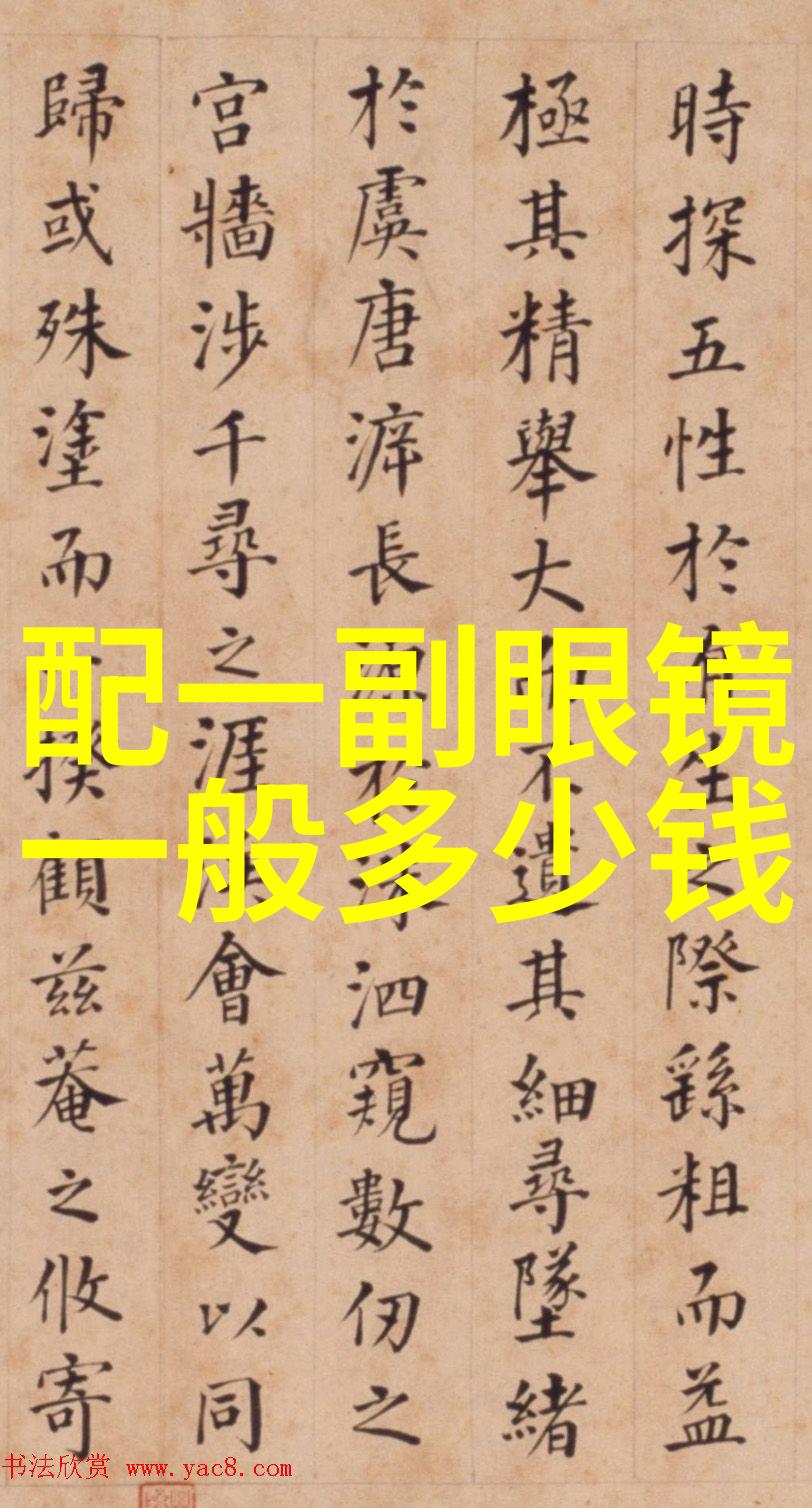 時探五性於有生之際繇粗而益
極其精舉大而不遺其細尋墜緒
於虞唐滹長源於洙泗窺數仞之
宮牆涉千尋之涯涘會萬變以同
歸或殊塗而一揆顧茲菴之攸寄
配一副眼镜
一般多少钱
书法欣赏 www.yac8.com